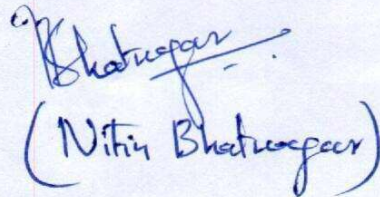 Bhatnagar
(Nitin Bhatnagar)